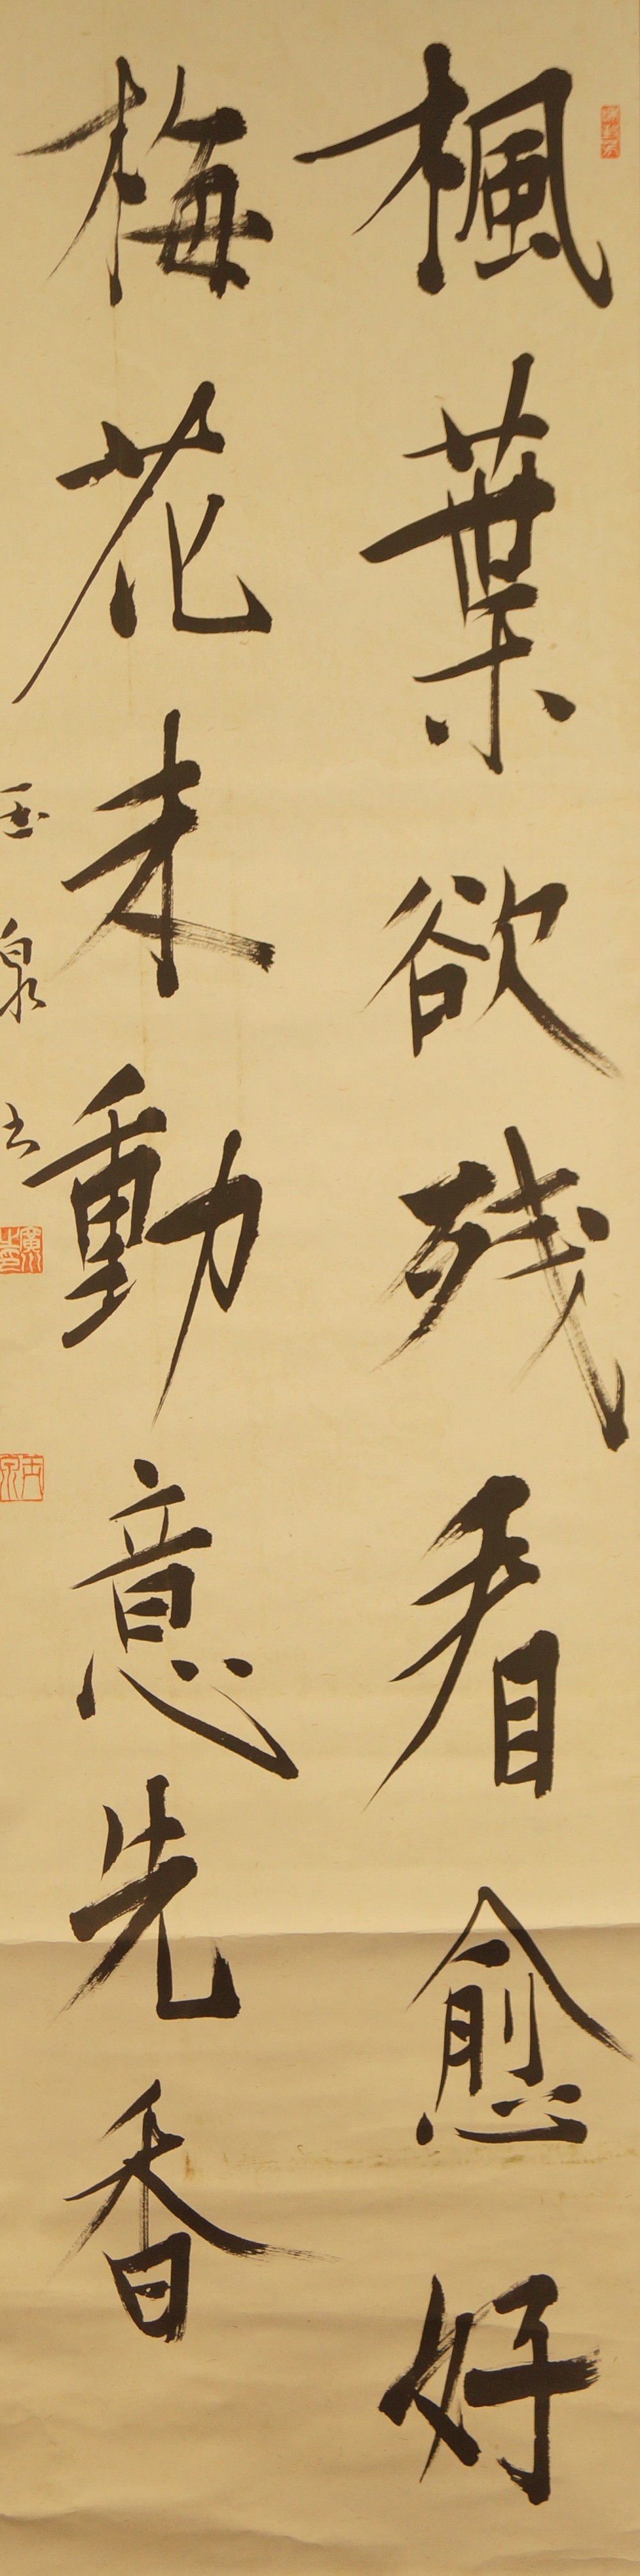 楓葉欲残看愈好
梅花未動意先香
玉泉书